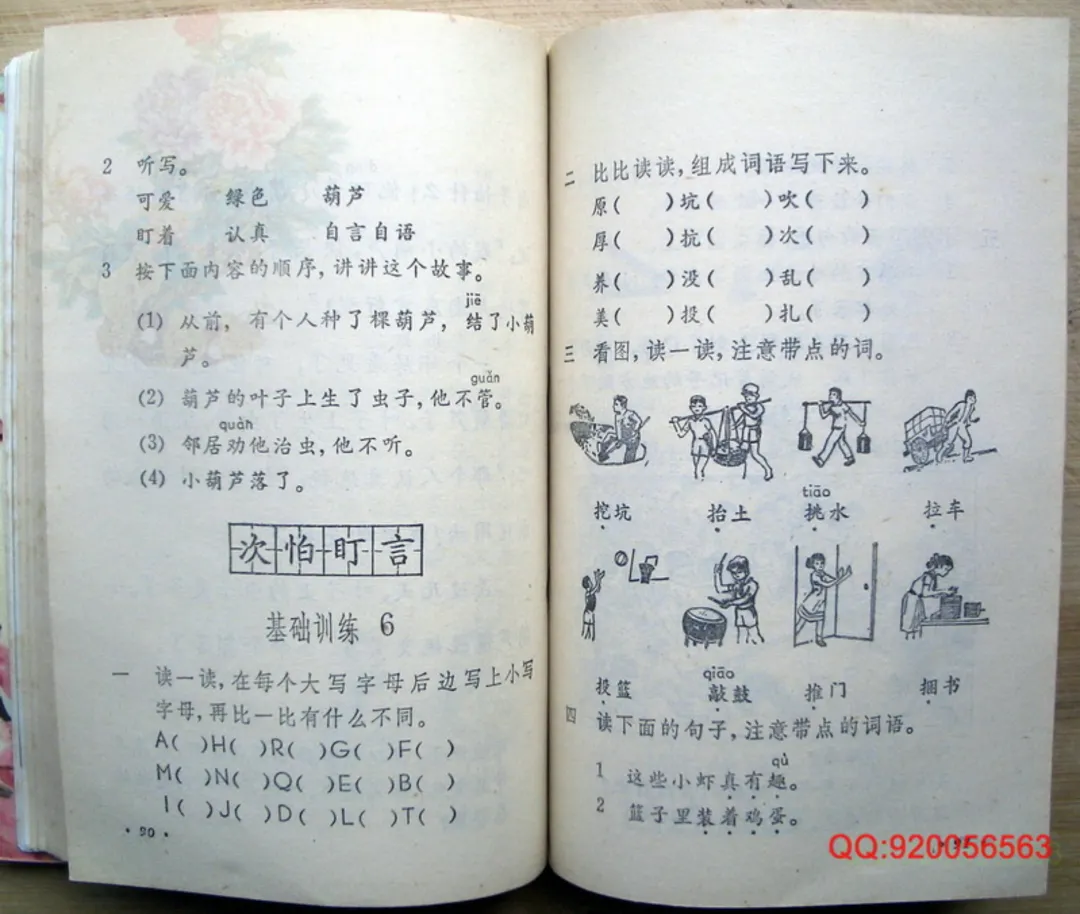 2 听写。
可爱 绿色 葫芦
盯着 认真 自言自语
3 按下面内容的顺序,讲讲这个故事。
jiē
(1) 从前,有个人种了棵葫芦,结了小葫
芦。
guǎn
(2) 葫芦的叶子上生了虫子,他不管。
quàn
(3) 邻居劝他治虫,他不听。
(4) 小葫芦落了。
次怕盯言
基础训练 6
一 读一读,在每个大写字母后边写上小写
字母,再比一比有什么不同。
A( )H( )R( )G( )F( )
M( )N( )Q( )E( )B( )
I( )J( )D( )L( )T( )
·90·
二 比比读读,组成词语写下来。
原( )坑( )吹( )
厚( )抗( )次( )
养( )没( )乱( )
美( )投( )扎( )
三 看图,读一读,注意带点的词。
tiāo
挖坑 抬土 挑水 拉车
qiāo
投篮 敲鼓 推门 捆书
四 读下面的句子,注意带点的词语。
qù
1 这些小虾真有趣。
2 篮子里装着鸡蛋。
QQ:920056563